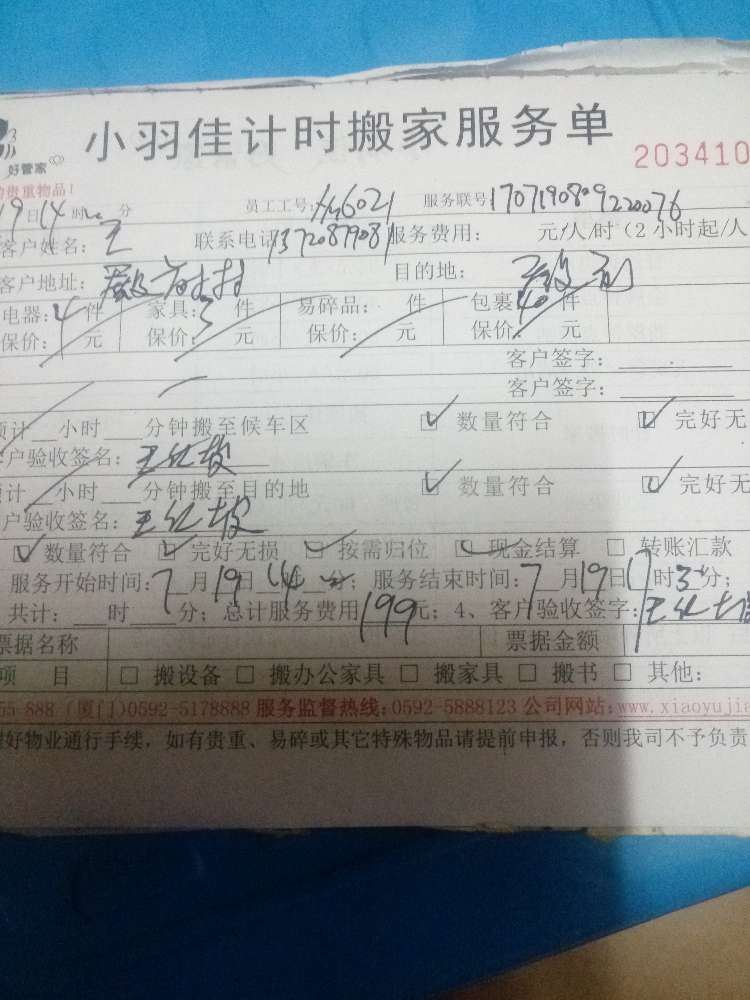 小羽佳计时搬家服务单
好管家
203410
贵重物品!
19日14时 分 员工工号: 6021 服务联号1707190809220076
客户姓名:王 联系电话 13720879081 服务费用: 元/人/时(2小时起/人
客户地址: 村 目的地:
电器:4件 家具:3件 易碎品: 件 包裹40件
保价: 元 保价: 元 保价: 元 保价: 元
客户签字:
客户签字:
预计 小时 分钟搬至候车区 ☑ 数量符合 ☑ 完好无
客户验收签名:王红坡
预计 小时 分钟搬至目的地 ☑ 数量符合 ☑ 完好无
客户验收签名:王红坡
☑ 数量符合 ☑ 完好无损 ☑ 按需归位 ☑ 现金结算 □ 转账汇款
服务开始时间:7月19日14 分; 服务结束时间:7月19日17时3 分;
共计: 时 分; 总计服务费用199元; 4、客户验收签字:王红坡
票据名称 票据金额
项 目 □ 搬设备 □ 搬办公家具 □ 搬家具 □ 搬书 □ 其他:
55-888 (厦门)0592-5178888 服务监督热线:0592-5888123 公司网站:www.xiaoyujia
好物业通行手续,如有贵重、易碎或其它特殊物品请提前申报,否则我司不予负责